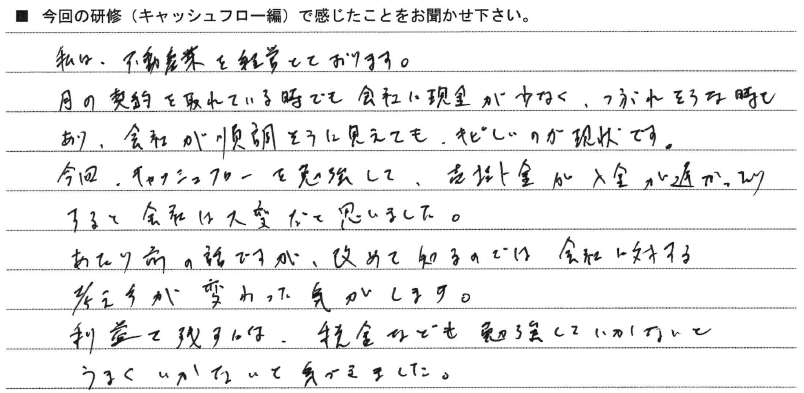 ■ 今回の研修（キャッシュフロー編）で感じたことをお聞かせ下さい。
私は、不動産業を経営しております。
月の契約を取れている時でも会社に現金が少なく、つぶれそうな時も
あり、会社が順調そうに見えても、きびしいのが現状です。
今回、キャッシュフローを勉強して、売掛金が入金が遅かったり
すると会社は大変だと思いました。
あたり前の話ですが、改めて知るのでは会社に対する
考え方が変わった気がします。
利益を残すには、税金なども勉強していかないと
うまくいかないと気づきました。